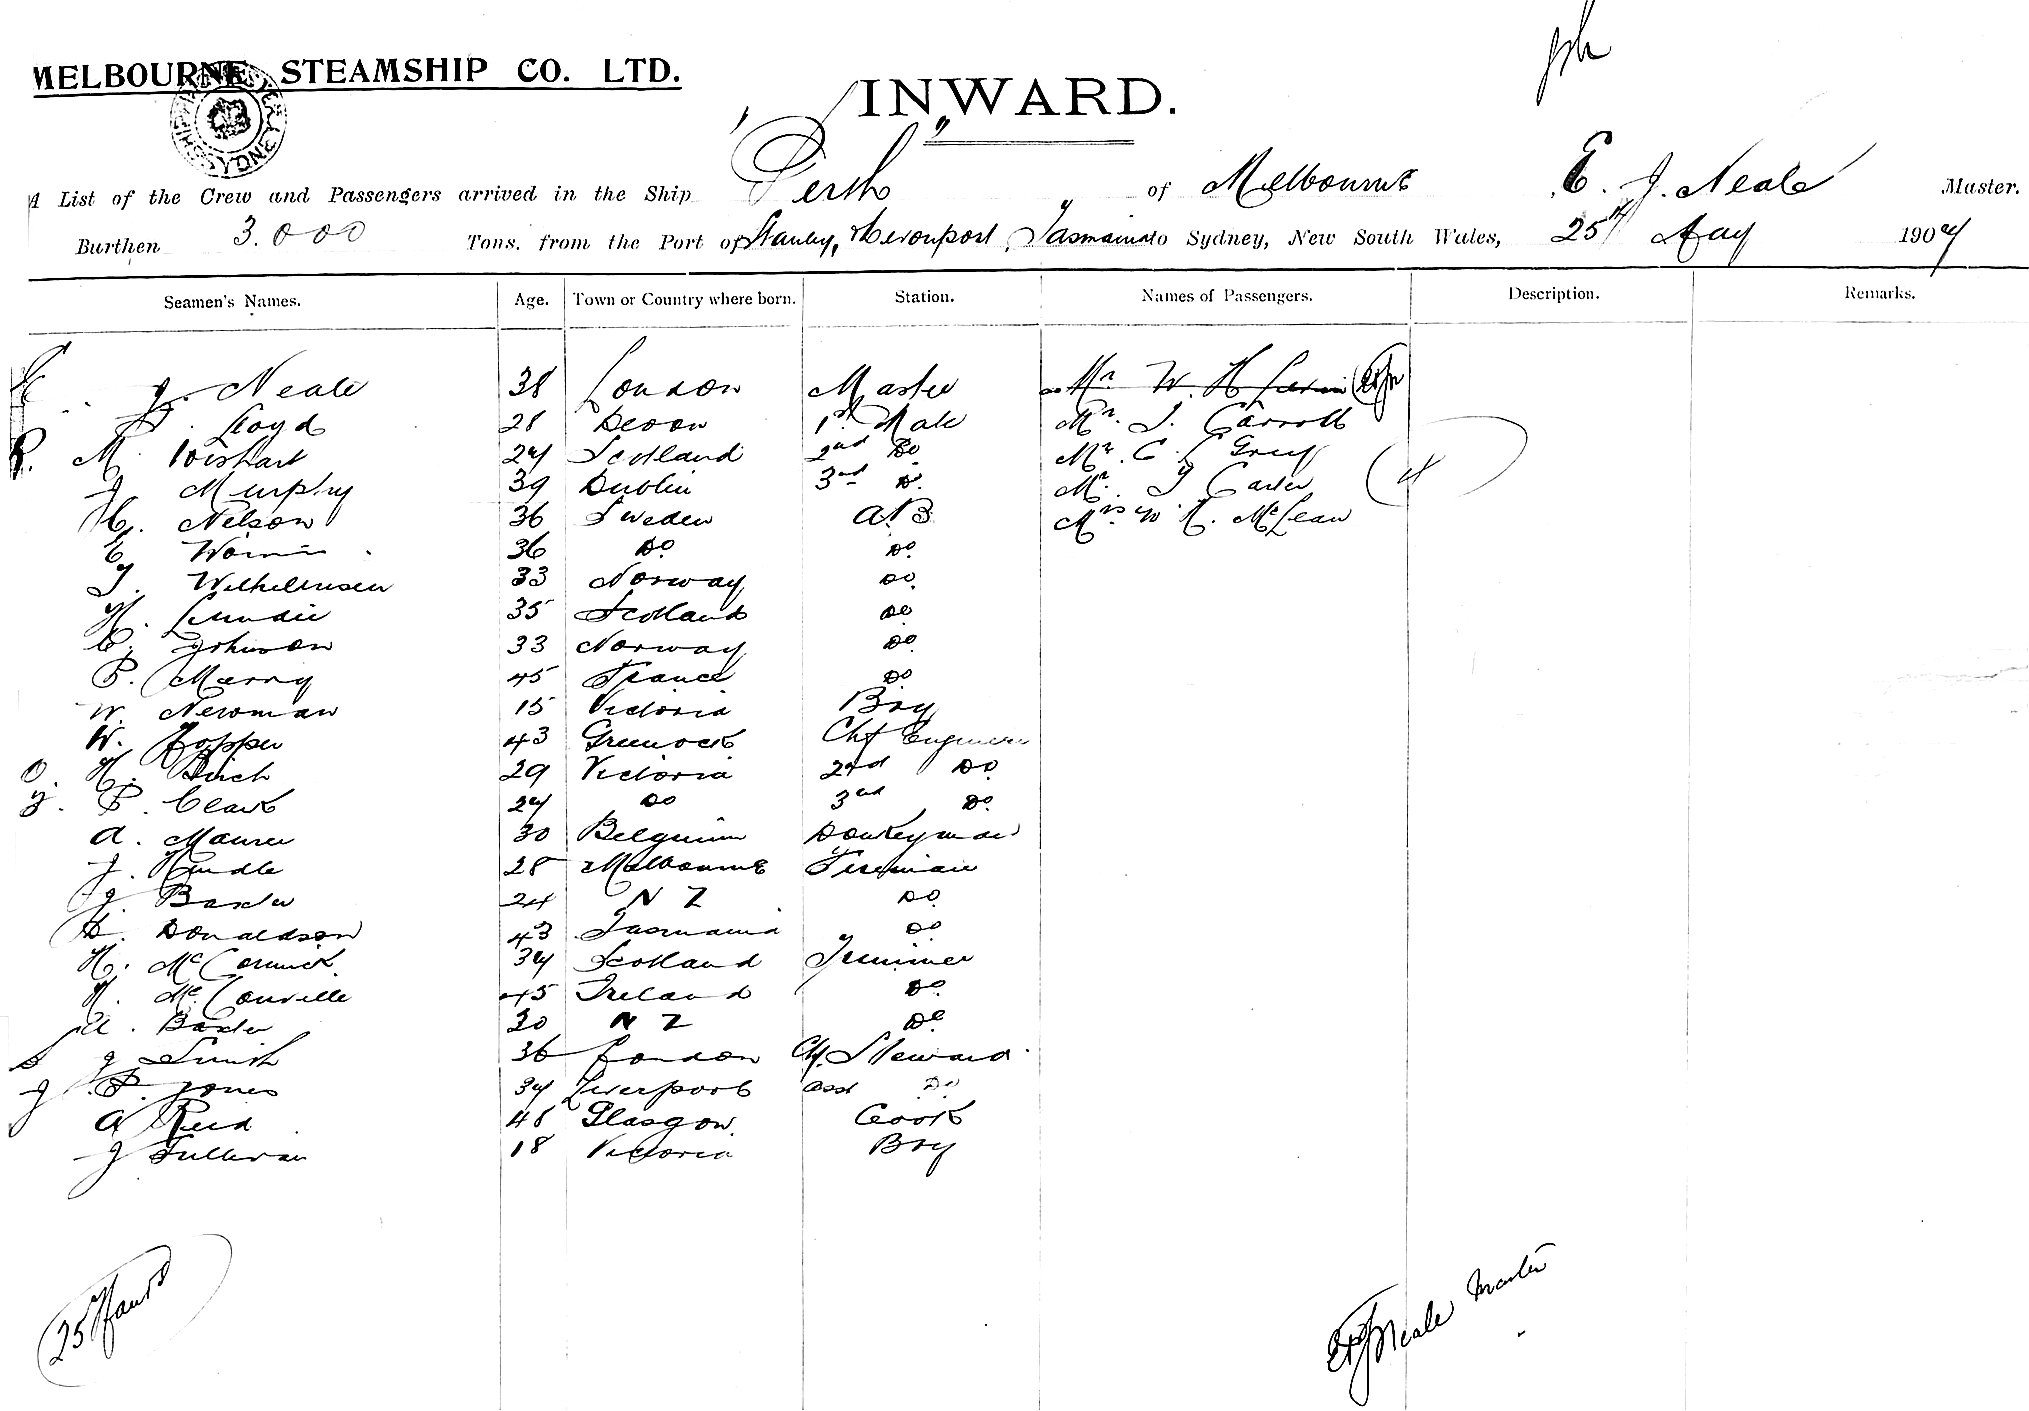 MELBOURNE STEAMSHIP CO. LTD.
INWARD.
A List of the Crew and Passengers arrived in the Ship "Perth" of Melbourne, E. J. Neale Master.
Burthen 3.000 Tons, from the Port of Stanley, & Devonport, Tasmania to Sydney, New South Wales, 25th May 1907
Seamen's Names. Age. Town or Country where born. Station. Names of Passengers. Description. Remarks.
E. J. Neale 38 London Master Mr W. H.
Lloyd 28 Devon 1st Mate Mr. J. Carroll
R. M. Wishart 27 Scotland 2nd Do Mr. C. Gray
J. Murphy 39 Dublin 3rd Do. Mr. J Carter (4)
Nelson 36 Sweden AB Mrs W K. McLean
E 36 Do. Do.
J. Wilhelmsen 33 Norway Do.
H. Lundie 35 Scotland Do
C. Johnson 33 Norway Do.
P. Merry 45 France Do.
W. Newman 15 Victoria Boy
W. Hopper 43 Greenock Chf Engineer
O. H. Birch 29 Victoria 2nd Do
J. P. Clark 27 Do 3rd Do.
A. Maurer 30 Belguium Donkeyman
J. Rundle 28 Melbourne Fireman
J. Baxter 24 N Z Do.
D. Donaldson 43 Tasmania Do
H. McCormick 37 Scotland Trimmer
H. McConville 45 Ireland Do.
A. Baxter 30 N Z Do.
S J Smith 36 London Ch. Steward
J P. Jones 37 Liverpool asst Do.
A Reid 48 Glasgow. Cook
J Sullivan 18 Victoria Boy
25 Hands
E J Neale Master